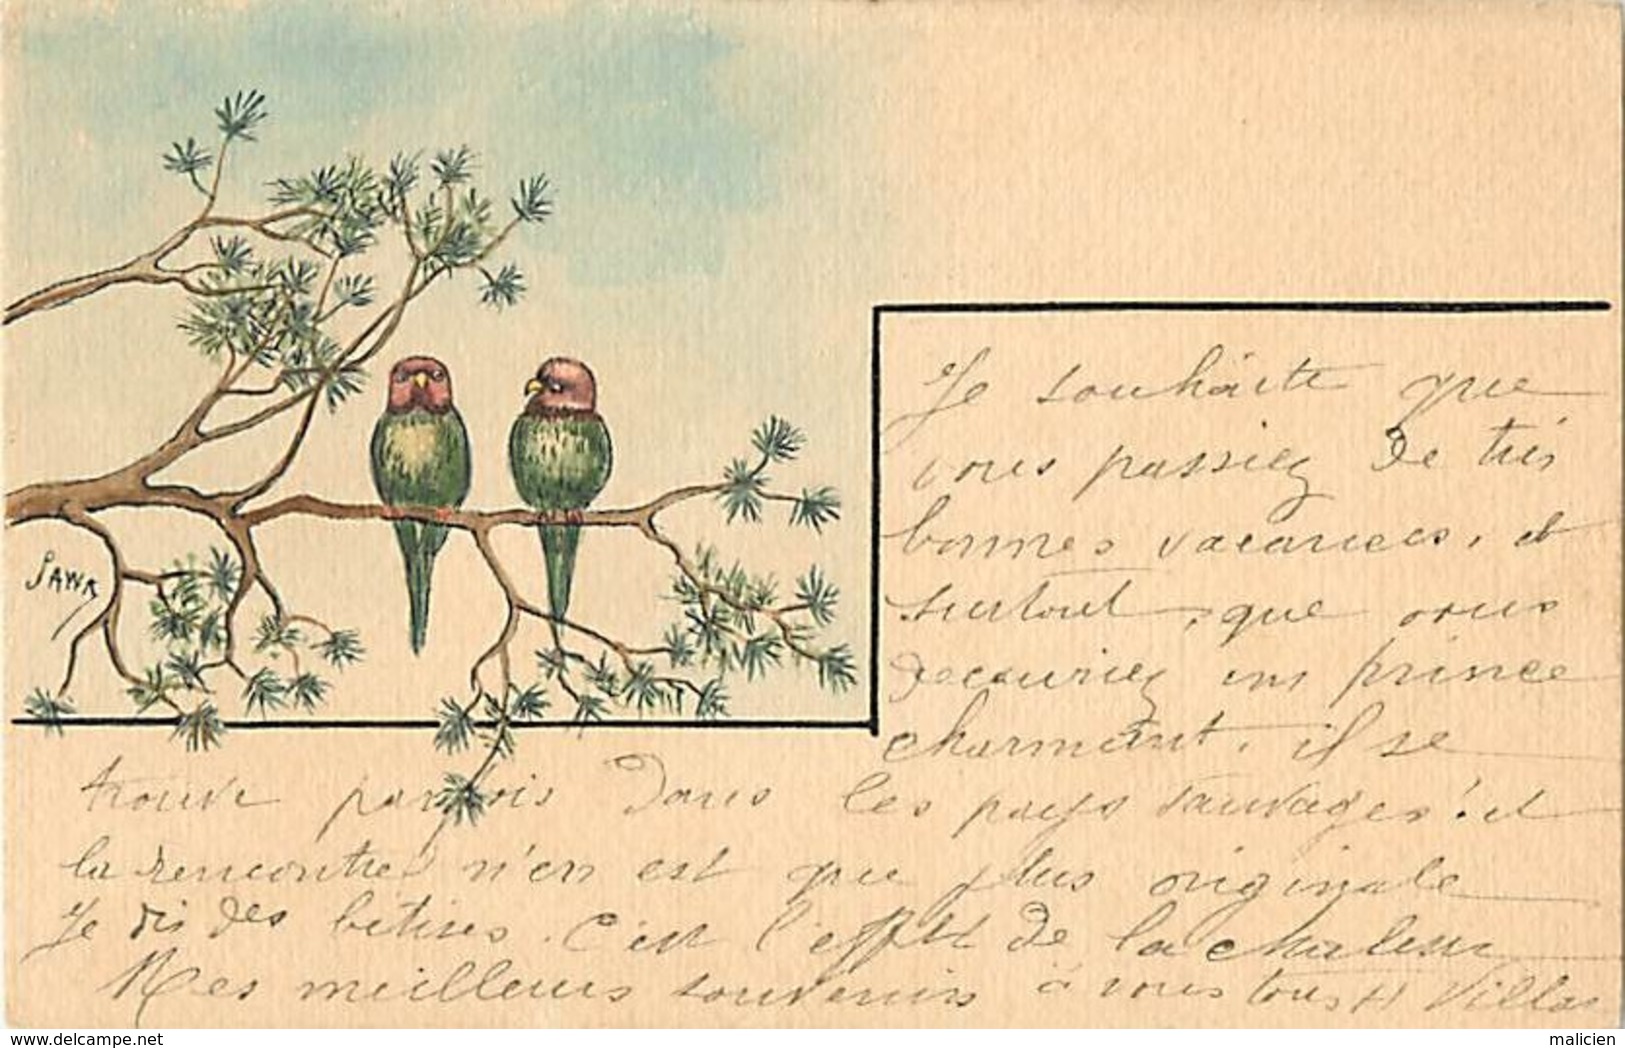 SAWA
Je souhaite que
vous passiez de très
bonnes vacances, et
surtout, que vous
decouvriez un prince
charmant, il se
trouve parfois dans les pays sauvages! et
la rencontre n'en est que plus originale
Je dis des bêtises. C'est l'effet de la chaleur
Mes meilleurs souvenirs à vous tous H Villas
delcampe.net
malicien